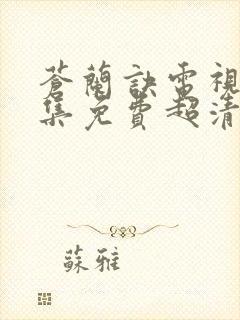 蒼蘭訣電視
集免費超清
蘇雅